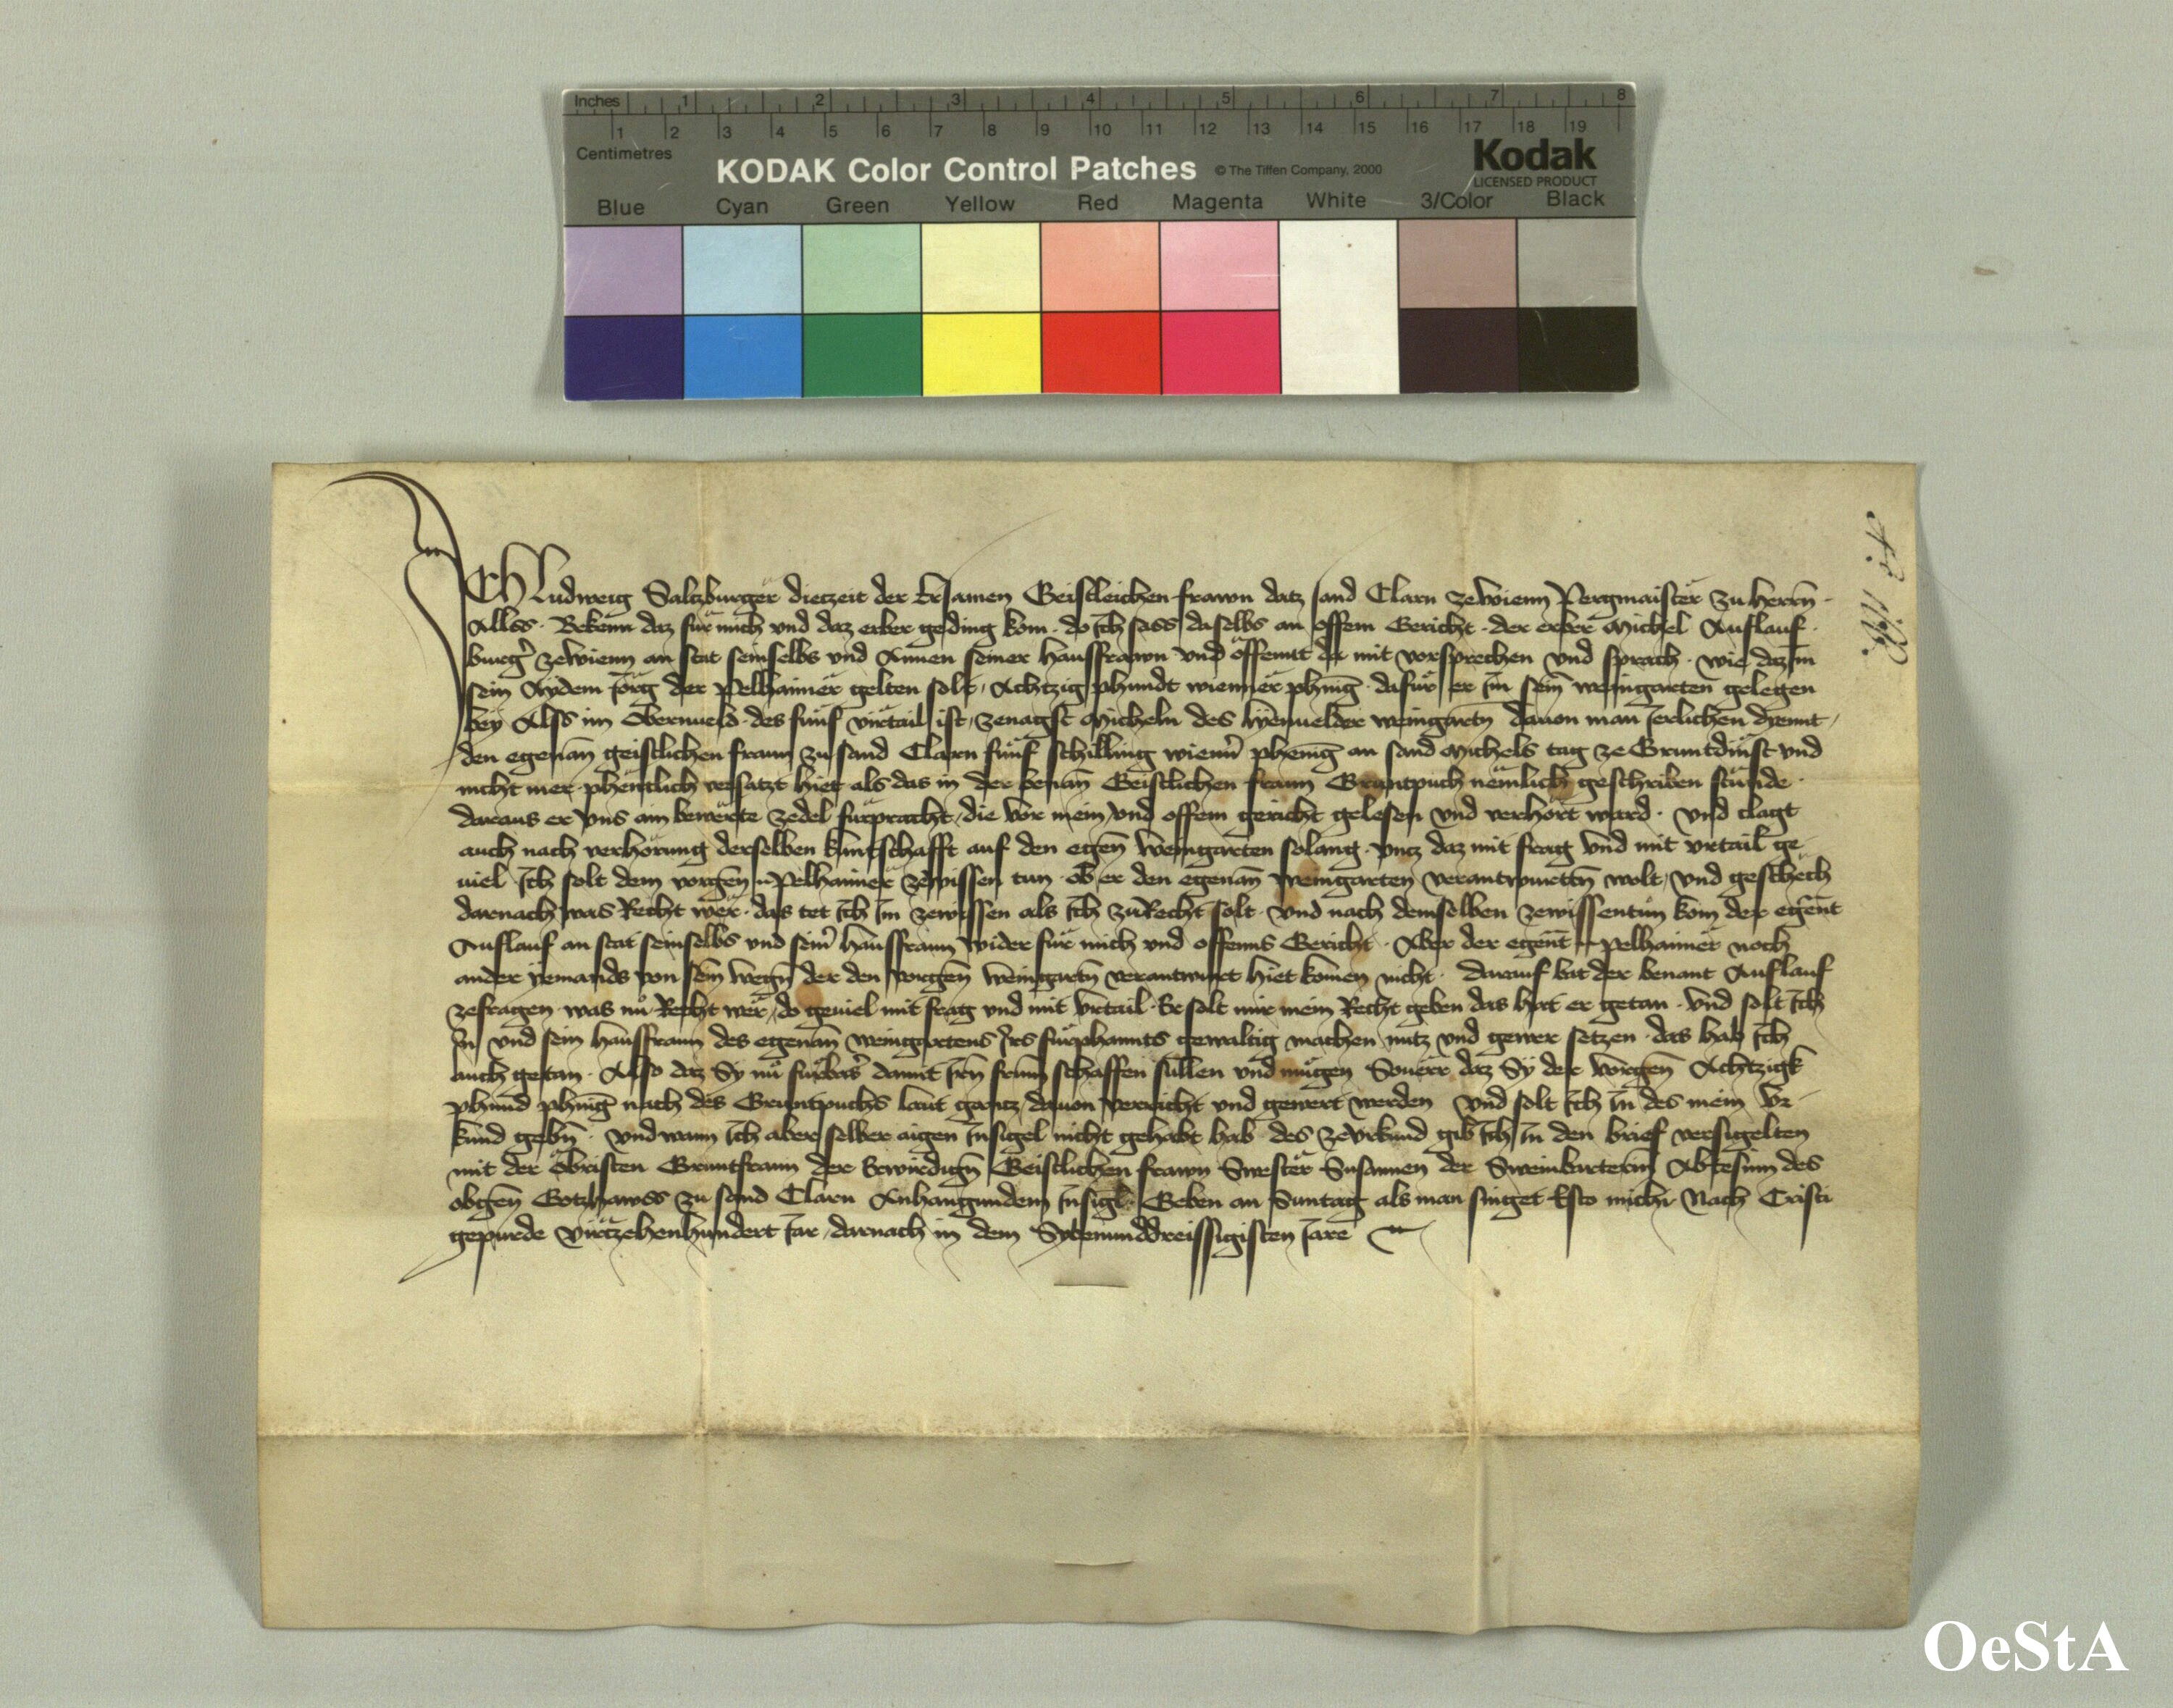 Inches 1 2 3 4 5 6 7 8
1 2 3 4 5 6 7 8 9 10 11 12 13 14 15 16 17 18 19
Centimetres
KODAK Color Control Patches © The Tiffen Company, 2000 Kodak
LICENSED PRODUCT
Blue Cyan Green Yellow Red Magenta White 3/Color Black
Ich Ludweig Saltzburger diezeit der Ersamen Geistleichen frawn datz sand Clarn zewienn Pergmaister zu herrn
Allss · Bekenn daz für mich vnd daz erber geding kom · do Ich sass daselbs an offem Gericht · der erber Michel Auflauf ·
burger zewienn an stat seinselbs vnd Annen seiner hausfrawn vnd offennt da mit vorsprechen vnd sprach · wie daz im
sein Aydem Jörg der Pelhaimer gelten solt, Achtzig phundt wienner phenig · dafür er Im sein weingarten gelegen
bey Alss im Obernueld · des fünf virtail ist, zenagst Micheln des weingartn dauon man Jerlichen dyennt,
den egenan geistlichen fraun zu sand Clarn fünf schilling wienner phenig an sand Michels tag ze Gruntdinst vnd
nicht mer phentlich versatzt hiet als das in der benan Geistlichen fraun Gruntpuch nemlich geschriben stunde ·
daraus er vns ain bewerte zedel fürpracht, die vor mein vnd offem gericht gelesen vnd verhort ward · vnd clagt
auch nach verhorung derselben kuntschafft auf den egen weingarten solang · vntz daz mit frag vnd mit vrtail ge
uiel Ich solt dem vorgen Pelhaimer zewissen tun · ob er den egenan weingarten verantwurttn wolt, vnd geschech
darnach was Recht wer · das tet Ich Im zewissen als Ich zuRecht solt · vnd nach demselben zewissentun kom der egent
Auflauf an stat seinselbs vnd seiner hausfraun wider für mich vnd offenns Gericht · Aber der egent Pelhaimer noch
ander yemands von sein wegn der den vorgen weingartn verantwurt hiet komen nicht · darauf bat der benant Auflauf
zefragen · was nu Recht wer, do geuiel mit frag vnd mit vrtail · Er solt mir mein Recht geben das hat er getan · vnd solt Ich
In vnd sein hausfraun des egenan weingartens Irs fürphannts gewaltig machen nutz vnd gewer setzen · das hab Ich
auch getan · Also daz Sy nu fürbas damit Irn frumm schaffen sullen vnd mügen Souerr daz Sy der vorgen Achtzigk
phund phenig nach des Gruntpuchs laut gantz dauon verricht vnd gewert werden vnd solt Ich In des mein vr
kund gebn · vnd wann Ich aber selber aigen Insigel nicht gehabt hab des zevrkund gib Ich In den brief versigelten
mit der obristen Gruntfraun der Erwirdign Geistlichen frawn Swester Susannen der Abtessinn des
obgen Gotzhawss zu sand Clarn Anhangundem Insigl · Geben an Suntag als man singet Esto michi Nach Cristi
gepurde virtzehenhundert Jar, darnach in dem Sybenunddreissigisten Jare
OeStA